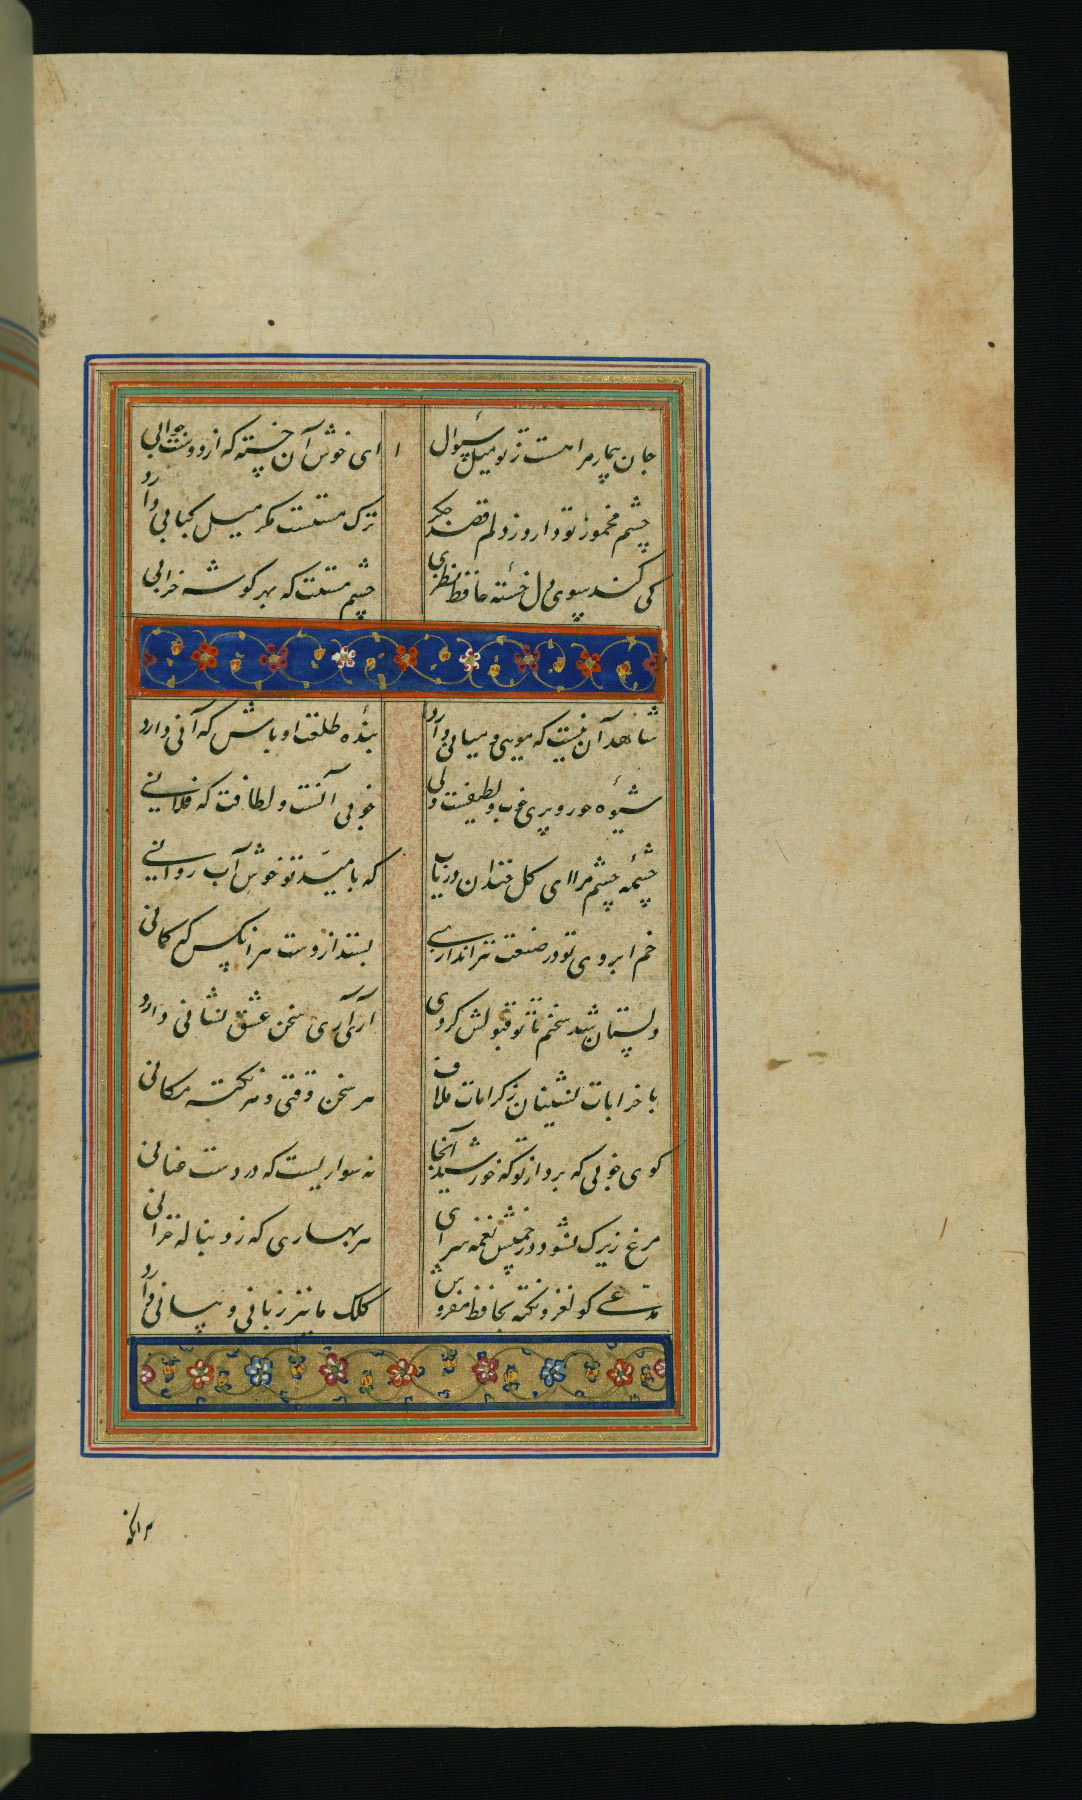 جان بیمار مرا هست ز تو میل سؤال
ای خوش آن خسته که از دوست جوابی دارد
چشم مخمور تو دارد ز دلم قصد جکر
ترک مستست مکر میل کبابی دارد
کی کند سوی دل خستهٔ حافظ نظری
چشم مستت که بهر کوشه خرابی
شاهد آن نیست که مویی و میانی دارد
بندهٔ طلعت او باش که آنی دارد
شیوهٔ حور و پری خوب و لطیفست ولی
خوبی آنست و لطافت که فلانی
چشمهٔ چشم مرا ای کل خندان دریاب
که بامید تو خوش آب روانی
خم ابروی تو در صنعت تیر اندازی
بستد از دست هر انکس که کمانی
دلستان شد سخنم تا تو قبولش کردی
آری آری سخن عشق نشانی دارد
با خرابات نشینان ز کرامات ملاف
هر سخن وقتی و هر نکته مکانی
کوی خوبی که برد از تو که خورشید آنجا
نه سواریست که در دست عنانی
مرغ زیرک نشود در چمنش نغمه سرای
هر بهاری که ز دنباله خزانی
مدعی کو لغز و نکته بحافظ مفروش
کلک ما نیز زبانی و بیانی دارد
هر انکه